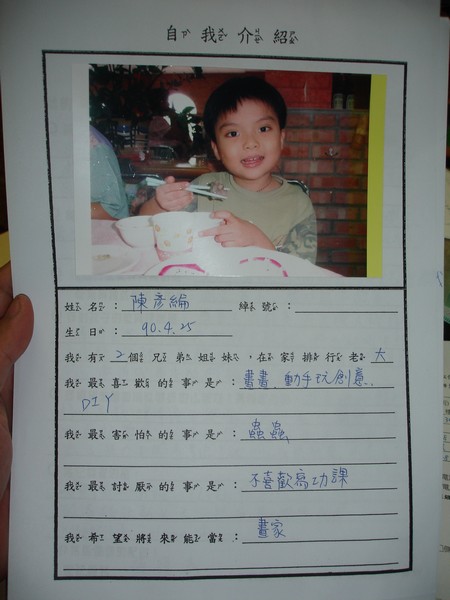 自我介紹
姓名：陳彥綸 綽號：
生日：90.4.25
我有2個兄弟姐妹，在家排行老大
我最喜歡的事是：畫畫、動手玩創意、
DIY
我最害怕的事是：蟲蟲
我最討厭的事是：不喜歡寫功課
我希望將來能當：畫家